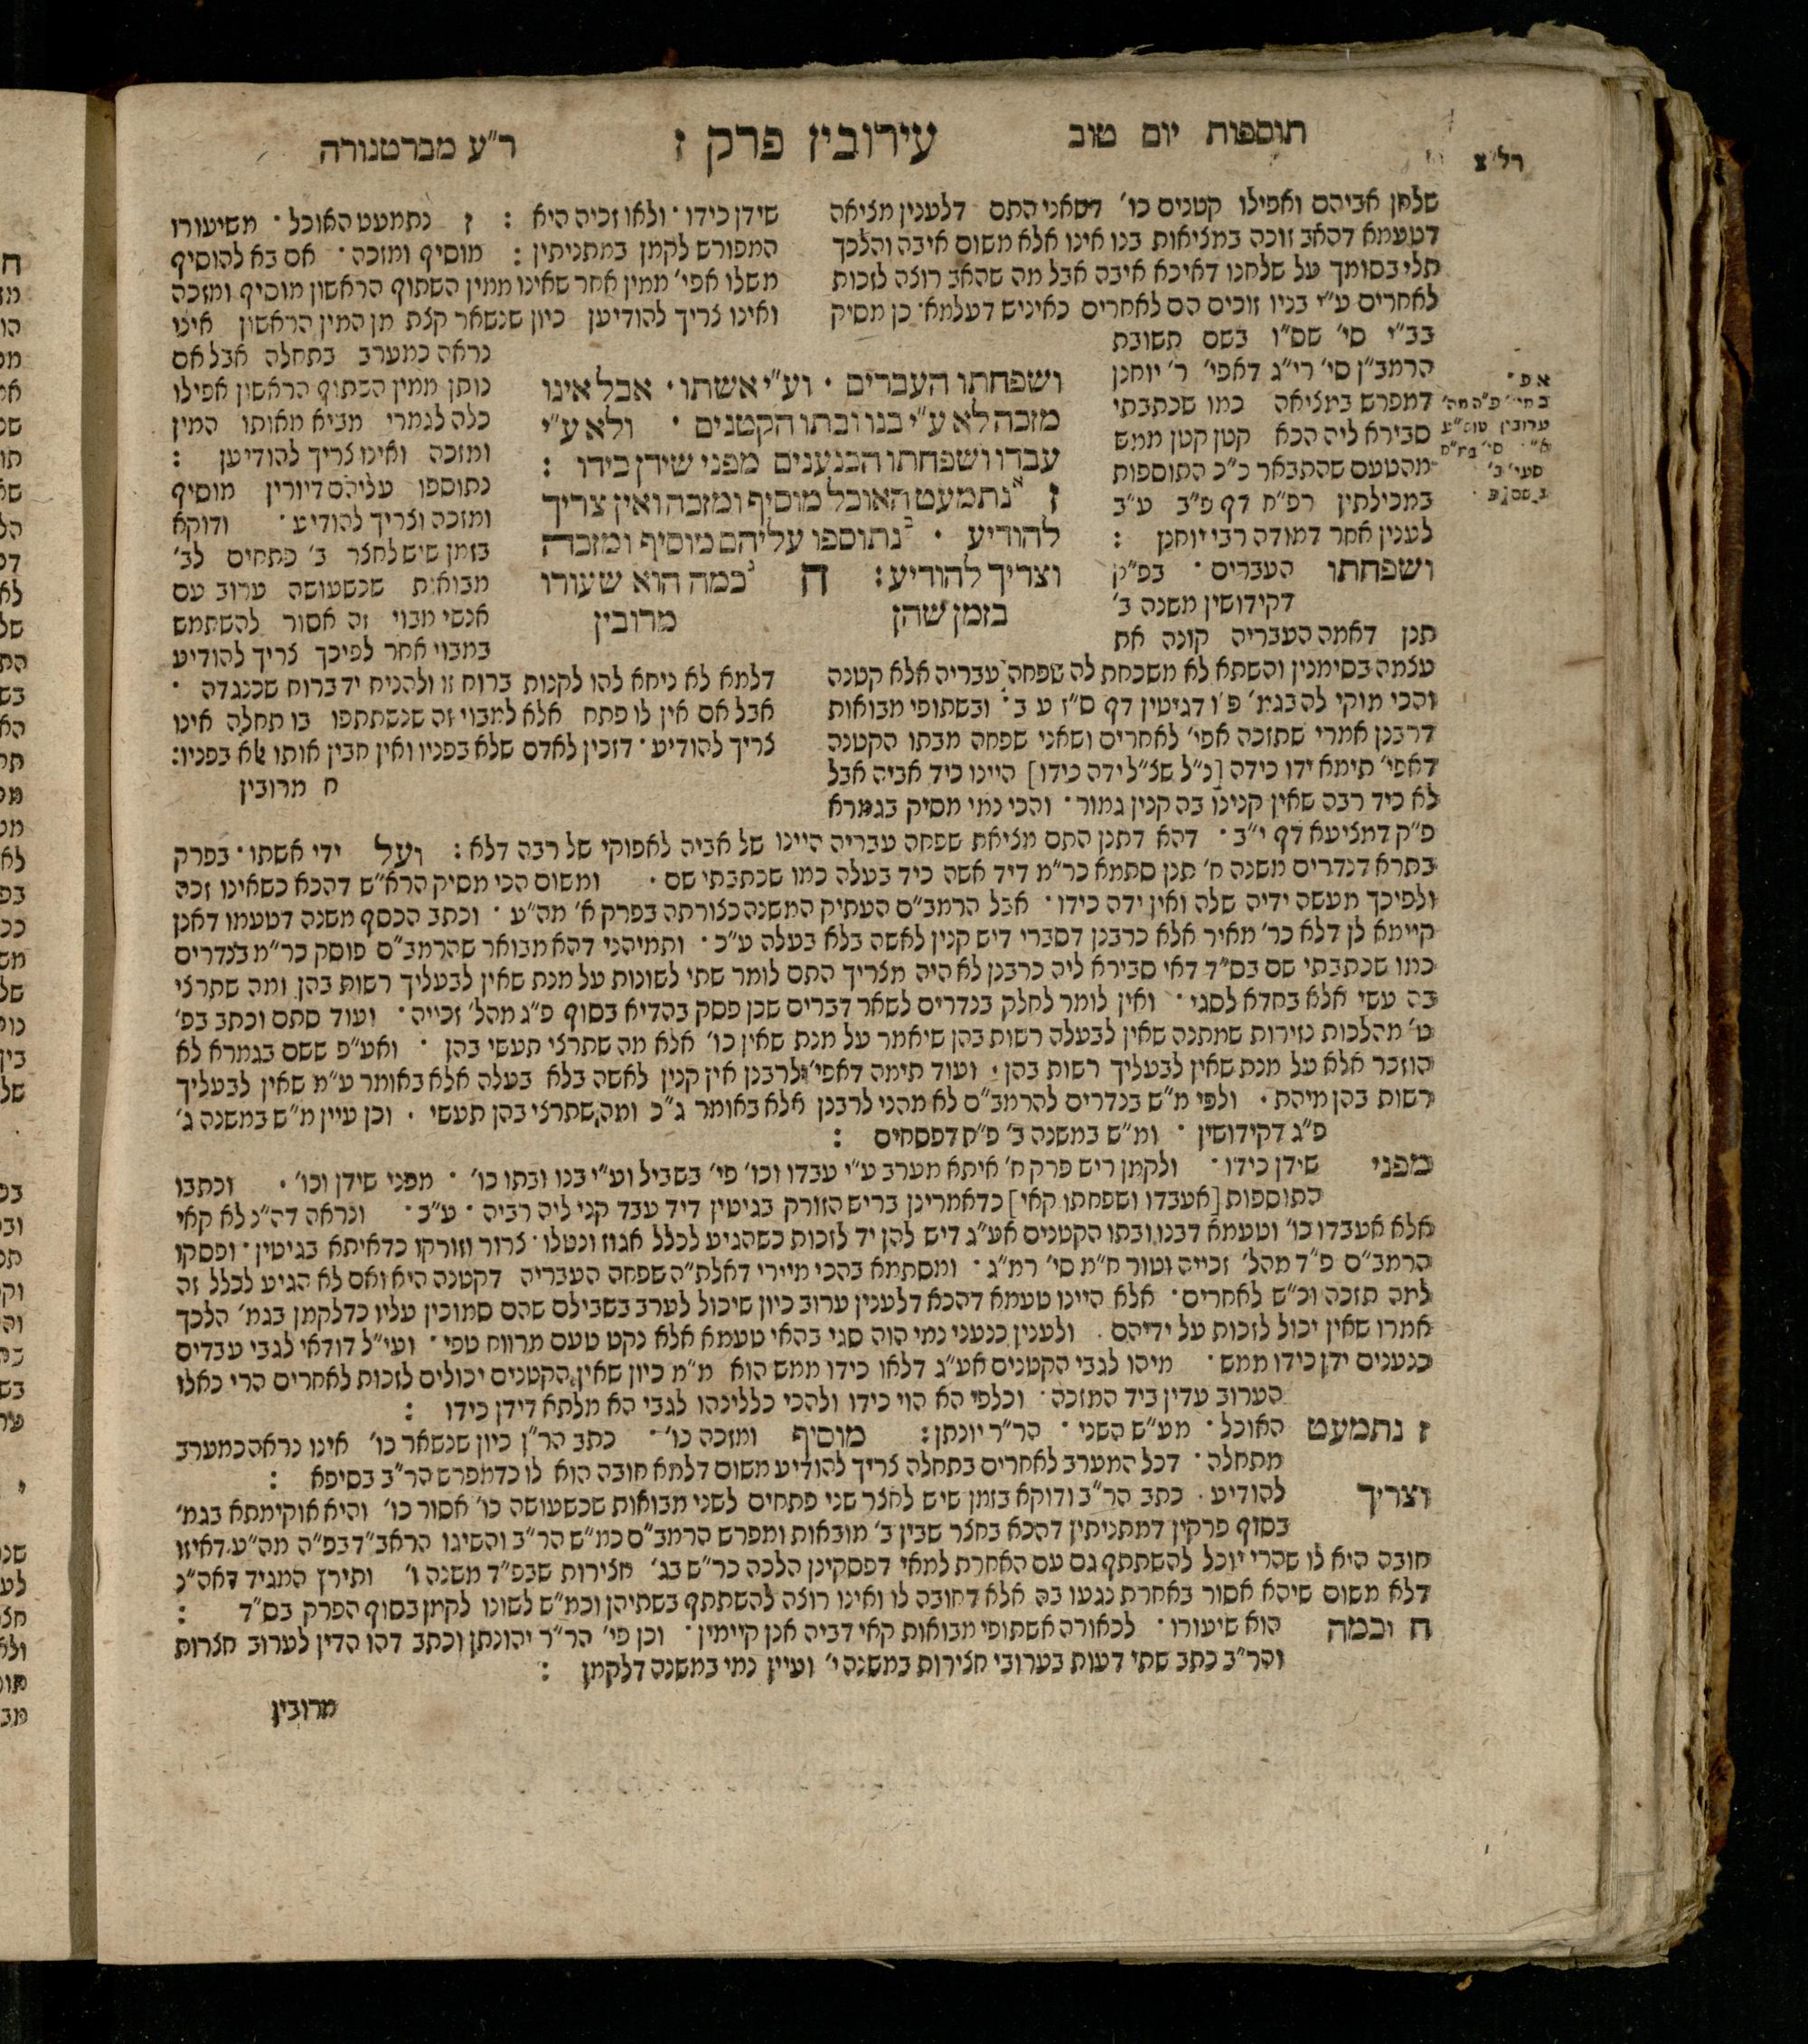 תוספות יום טוב
עירובין פרק ז
ר״ע מברטנורה
שלחן אביהם ואפילו קטנים כו׳ דשאני התם דלענין מציאה
דטעמא דהאב זוכה במציאות בנו אינו אלא משום איבה והלכך
תלי בסומך על שלחנו דאיכא איבה אבל מה שהאב רוצה לזכות
לאחרים ע״י בניו זוכים הם לאחרים כאיניש דעלמא · כן מסיק
בב״י סי׳ שס״ו בשם תשובת
הרמב״ן סי׳ רי״ג דאפי׳ ר׳ יוחנן
דמפרש במציאה כמו שכתבתי
סבירא ליה הכא קטן קטן ממש
מהטעם שהתבאר כ״כ התוספות
במכילתין רפ״ח דף פ״ב ע״ב
לענין אחר דמודה רבי יוחנן :
ושפחתו העברים · בפ״ק
דקידושין משנה ב׳
תנן דאמה העבריה קונה את
עצמה בסימנין והשתא לא משכחת לה שפחה עבריה אלא קטנה
והכי מוקי לה בגמ׳ פ״ו דגיטין דף ס״ז ע ב · ובשתופי מבואות
דרבנן אמרי שתזכה אפי׳ לאחרים ושאני שפחה מבתו הקטנה
דאפי׳ תימא ידו כידה [נ״ל שצ״ל ידה כידו] היינו כיד אביה אבל
לא כיד רבה שאין קנינו בה קנין גמור · והכי נמי מסיק בגמרא
פ״ק דמציעא דף י״ב · דהא דתנן התם מציאת שפחה עבריה היינו של אביה לאפוקי של רבה דלא : ועל ידי אשתו · בפרק
בתרא דנדרים משנה ח׳ תנן סתמא כר״מ דיד אשה כיד בעלה כמו שכתבתי שם · ומשום הכי מסיק הרא״ש דהכא כשאינו זכה
ולפיכך מעשה ידיה שלה ואין ידה כידו · אבל הרמב״ם העתיק המשנה כצורתה בפרק א׳ מה״ע · וכתב הכסף משנה דטעמו דאנן
קיימא לן דלא כר׳ מאיר אלא כרבנן דסברי דיש קנין לאשה בלא בעלה ע״כ · ותמיהני דהא מבואר שהרמב״ם פוסק כר״מ בנדרים
כמו שכתבתי שם בס״ד דאי סבירא ליה כרבנן לא היה מצריך התם לומר שתי לשונות על מנת שאין לבעליך רשות בהן ומה שתרצי
בה עשי אלא בחדא לסגי · ואין לומר לחלק בנדרים לשאר דברים שכן פסק בהדיא בסוף פ״ג מהל׳ זכייה · ועוד סתם וכתב בפ׳
ט׳ מהלכות נזירות שמתנה שאין לבעלה רשות בהן שיאמר על מנת שאין כו׳ אלא מה שתרצי תעשי בהן · ואע״פ ששם בגמרא לא
הוזכר אלא על מנת שאין לבעליך רשות בהן · ועוד תימה דאפי׳ לרבנן אין קנין לאשה בלא בעלה אלא באומר ע״מ שאין לבעליך
רשות בהן מיהת · ולפי מ״ש בנדרים להרמב״ם לא מהני לרבנן אלא באומר ג״כ ומה שתרצי בהן תעשי · וכן עיין מ״ש במשנה ג׳
פ״ג דקידושין · ומ״ש במשנה ב׳ פ״ח דפסחים :
מפני שידן כידו · ולקמן ריש פרק ח׳ איתא מערב ע״י עבדו וכו׳ פי׳ בשביל וע״י בנו ובתו כו׳ · מפני שידן וכו׳ · וכתבו
התוספות [אעבדו ושפחתו קאי] כדאמרינן בריש הזורק בגיטין דיד עבד קני ליה רביה · ע״ב · ונראה דה״נ לא קאי
אלא אעבדו כו׳ וטעמא דבנו ובתו הקטנים אע״ג דיש להן יד לזכות כשהגיע לכלל אגוז ונטלו · צרור וזורקו כדאיתא בגיטין · ופסקו
הרמב״ם פ״ד מהל׳ זכייה וטור ח״מ סי׳ רמ״ג · ומסתמא בהכי מיירי דאלת״ה שפחה העבריה דקטנה היא ואם לא הגיע לכלל זה
למה תזכה וכ״ש לאחרים · אלא היינו טעמא דהכא דלענין ערוב כיון שיכול לערב בשבילם שהם סמוכין עליו כדלקמן בגמ׳ הלכך
אמרו שאין יכול לזכות על ידיהם · ולענין כנעני נמי הוה סגי בהאי טעמא אלא נקט טעם מרווח טפי · ועי״ל דודאי לגבי עבדים
כנענים ידן כידו ממש · מיהו לגבי הקטנים אע״ג דלאו כידו ממש הוא מ״מ כיון שאין הקטנים יכולים לזכות לאחרים הרי כאלו
הערוב עדין ביד המזכה · וכלפי הא הוי כידו ולהכי כללינהו לגבי הא מלתא דידן כידו :
ז נתמעט האוכל · מע״ש השני · הר״ר יונתן : מוסיף ומזכה כו׳ · כתב הר״ן כיון שנשאר כו׳ אינו נראה כמערב
מתחלה · דכל המערב לאחרים בתחלה צריך להודיע משום דלמא חובה הוא לו כדמפרש הר״ב בסיפא :
וצריך להודיע · כתב הר״ב ודוקא בזמן שיש לחצר שני פתחים לשני מבואות שכשעושה כו׳ אסור כו׳ והיא אוקימתא בגמ׳
בסוף פרקין דמתניתין דהכא בחצר שבין ב׳ מובאות ומפרש הרמב״ם כמ״ש הר״ב והשיגו הראב״ד בפ״ה מה״ע דאיזו
חובה היא לו שהרי יוכל להשתתף גם עם האחרת למאי דפסקינן הלכה כר״ש בג׳ חצירות שבפ״ד משנה ו׳ ותירץ המגיד דאה״נ
דלא משום שיהא אסור באחרת נגעו בה אלא דחובה לו ואינו רוצה להשתתף בשתיהן וכמ״ש לשונו לקמן בסוף הפרק בס״ד :
ח וכמה הוא שיעורו · לכאורה אשתופי מבואות קאי דביה אנן קיימין · וכן פי׳ הר״ר יהונתן וכתב דהו הדין לערוב חצרות
והר״ב כתב שתי דעות בערובי חצירות במשנה י׳ ועיין נמי במשנה דלקמן :
מרובין
ושפחתו העברים · וע״י אשתו · אבל אינו
מזכה לא ע״י בנו ובתו הקטנים · ולא ע״י
עבדו ושפחתו הכנענים מפני שידן כידו :
ז א נתמעט האוכל מוסיף ומזכה ואין צריך
להודיע · ב נתוספו עליהם מוסיף ומזכה
וצריך להודיע : ח ג כמה הוא שעורו
בזמן שהן מרובין
שידן כידו · ולאו זכיה היא : ז נתמעט האוכל · משיעורו
המפורש לקמן במתניתין : מוסיף ומזכה · אם בא להוסיף
משלו אפי׳ ממין אחר שאינו ממין השתוף הראשון מוסיף ומזכה
ואינו צריך להודיען כיון שנשאר קצת מן המין הראשון אינו
נראה כמערב בתחלה אבל אם
נותן ממין השתוף הראשון אפילו
כלה לגמרי מביא מאותו המין
ומזכה ואינו צריך להודיען :
נתוספו עליהם דיורין מוסיף
ומזכה וצריך להודיע · ודוקא
בזמן שיש לחצר ב׳ פתחים לב׳
מבואות שכשעושה ערוב עם
אנשי מבוי זה אסור להשתמש
במבוי אחר לפיכך צריך להודיע
דלמא לא ניחא להו לקנות ברוח זו ולהניח ידברוח שכנגדה ·
אבל אם אין לו פתח אלא למבוי זה שנשתתפו בו תחלה אינו
צריך להודיע · דזכין לאדם שלא בפניו ואין חבין אותו אלא בפניו :
ח מרובין